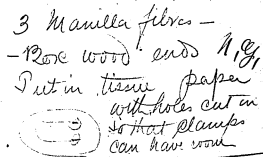 3 Manilla fibres –
– Box wood ends N.G.
Put in tissue paper
with holes cut in
so that clamps
can have room